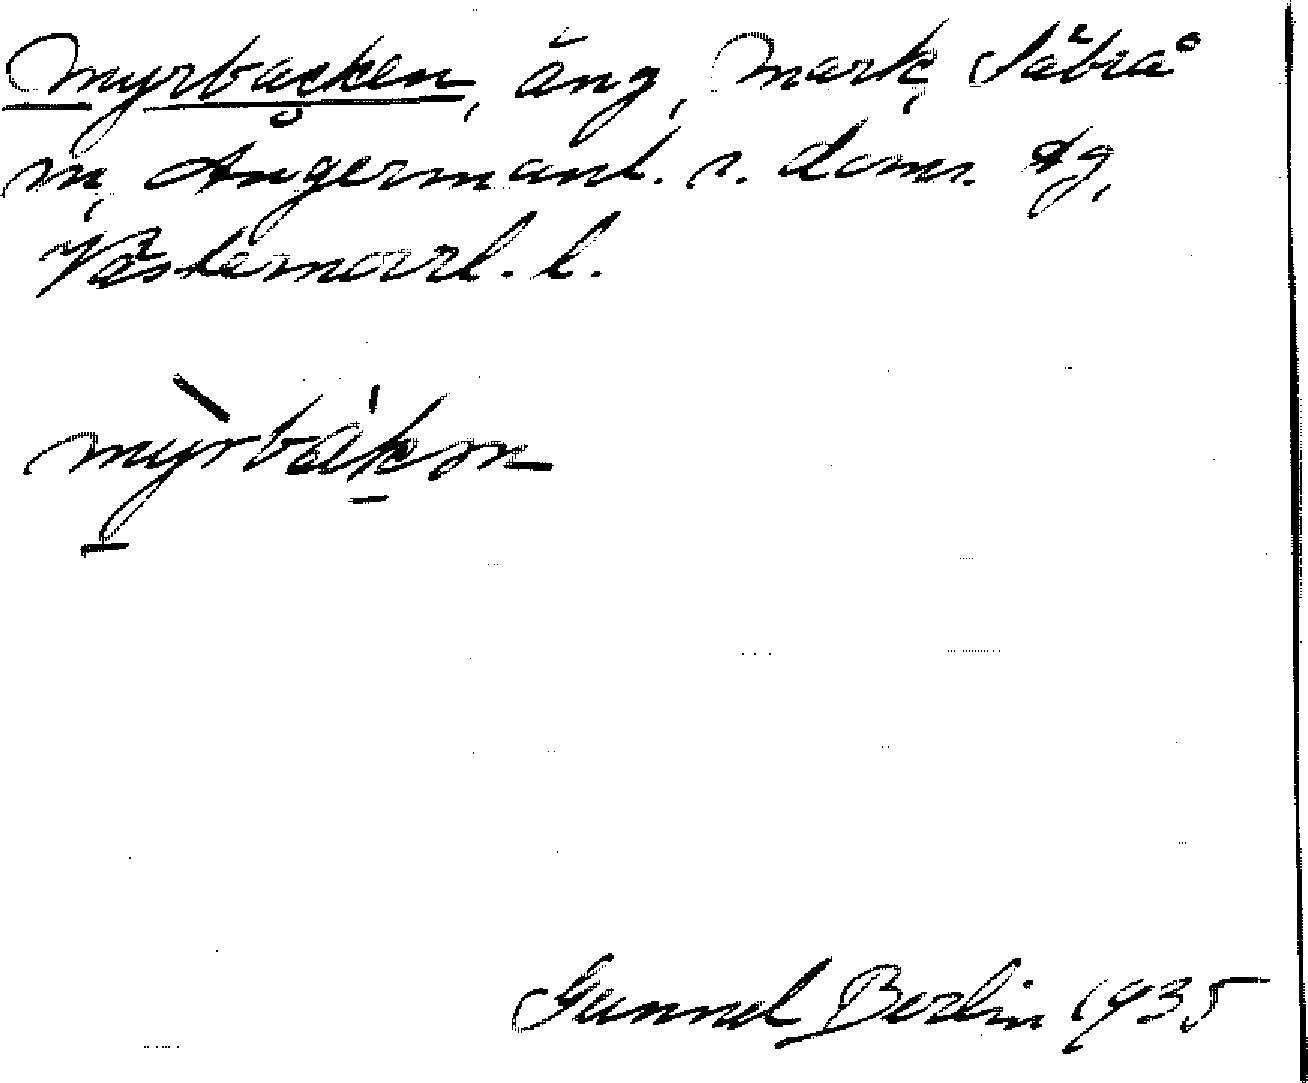 Myrbacken, äng, Mark, Säbrå
sn, Ångermanl. s. doms. dg,
Västernorrl. l.
myrbakən
Gunnel Berlin 1935